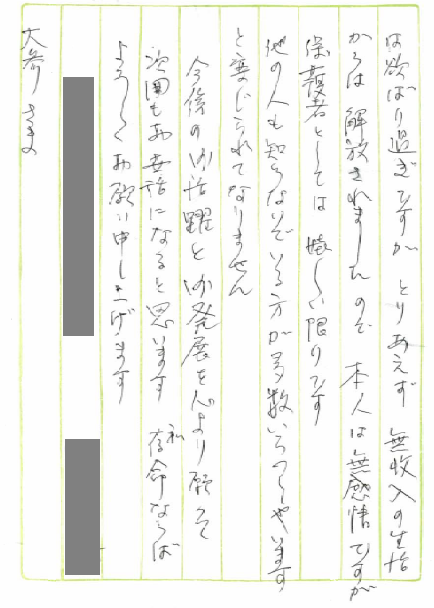 は欲ばり過ぎですが とりあえず 無収入の生活
からは 解放されましたので 本人は無感情ですが
保護者としては 嬉しい限りです
他の人も知らないでいる方が多数いらっしゃいます
と案じられてなりません
今後の御活躍と御発展を心より願って
次回もお世話になると思います 私存命ならば
よろしくお願い申し上げます
大斉さま